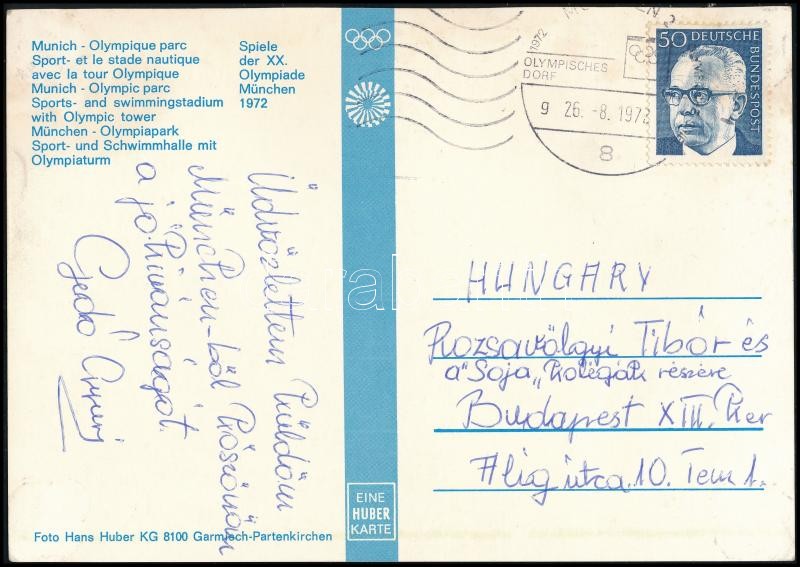 Munich - Olympique parc
Sport- et le stade nautique
avec la tour Olympique
Munich - Olympic parc
Sports- and swimmingstadium
with Olympic tower
München - Olympiapark
Sport- und Schwimmhalle mit
Olympiaturm
Spiele
der XX.
Olympiade
München
1972
1972
OLYMPISCHES
DORF
g 26.-8.1972
8
50 DEUTSCHE
BUNDESPOST
Üdvözlettem küldöm
München-ből köszönöm
a jókívánságot.
Gedó György
HUNGARY
Rozsavölgyi Tibor és
a "Soja" kolégák részére
Budapest XIII. Ker
Flig utca. 10. Tem 1.
EINE
HUBER
KARTE
Foto Hans Huber KG 8100 Garmisch-Partenkirchen